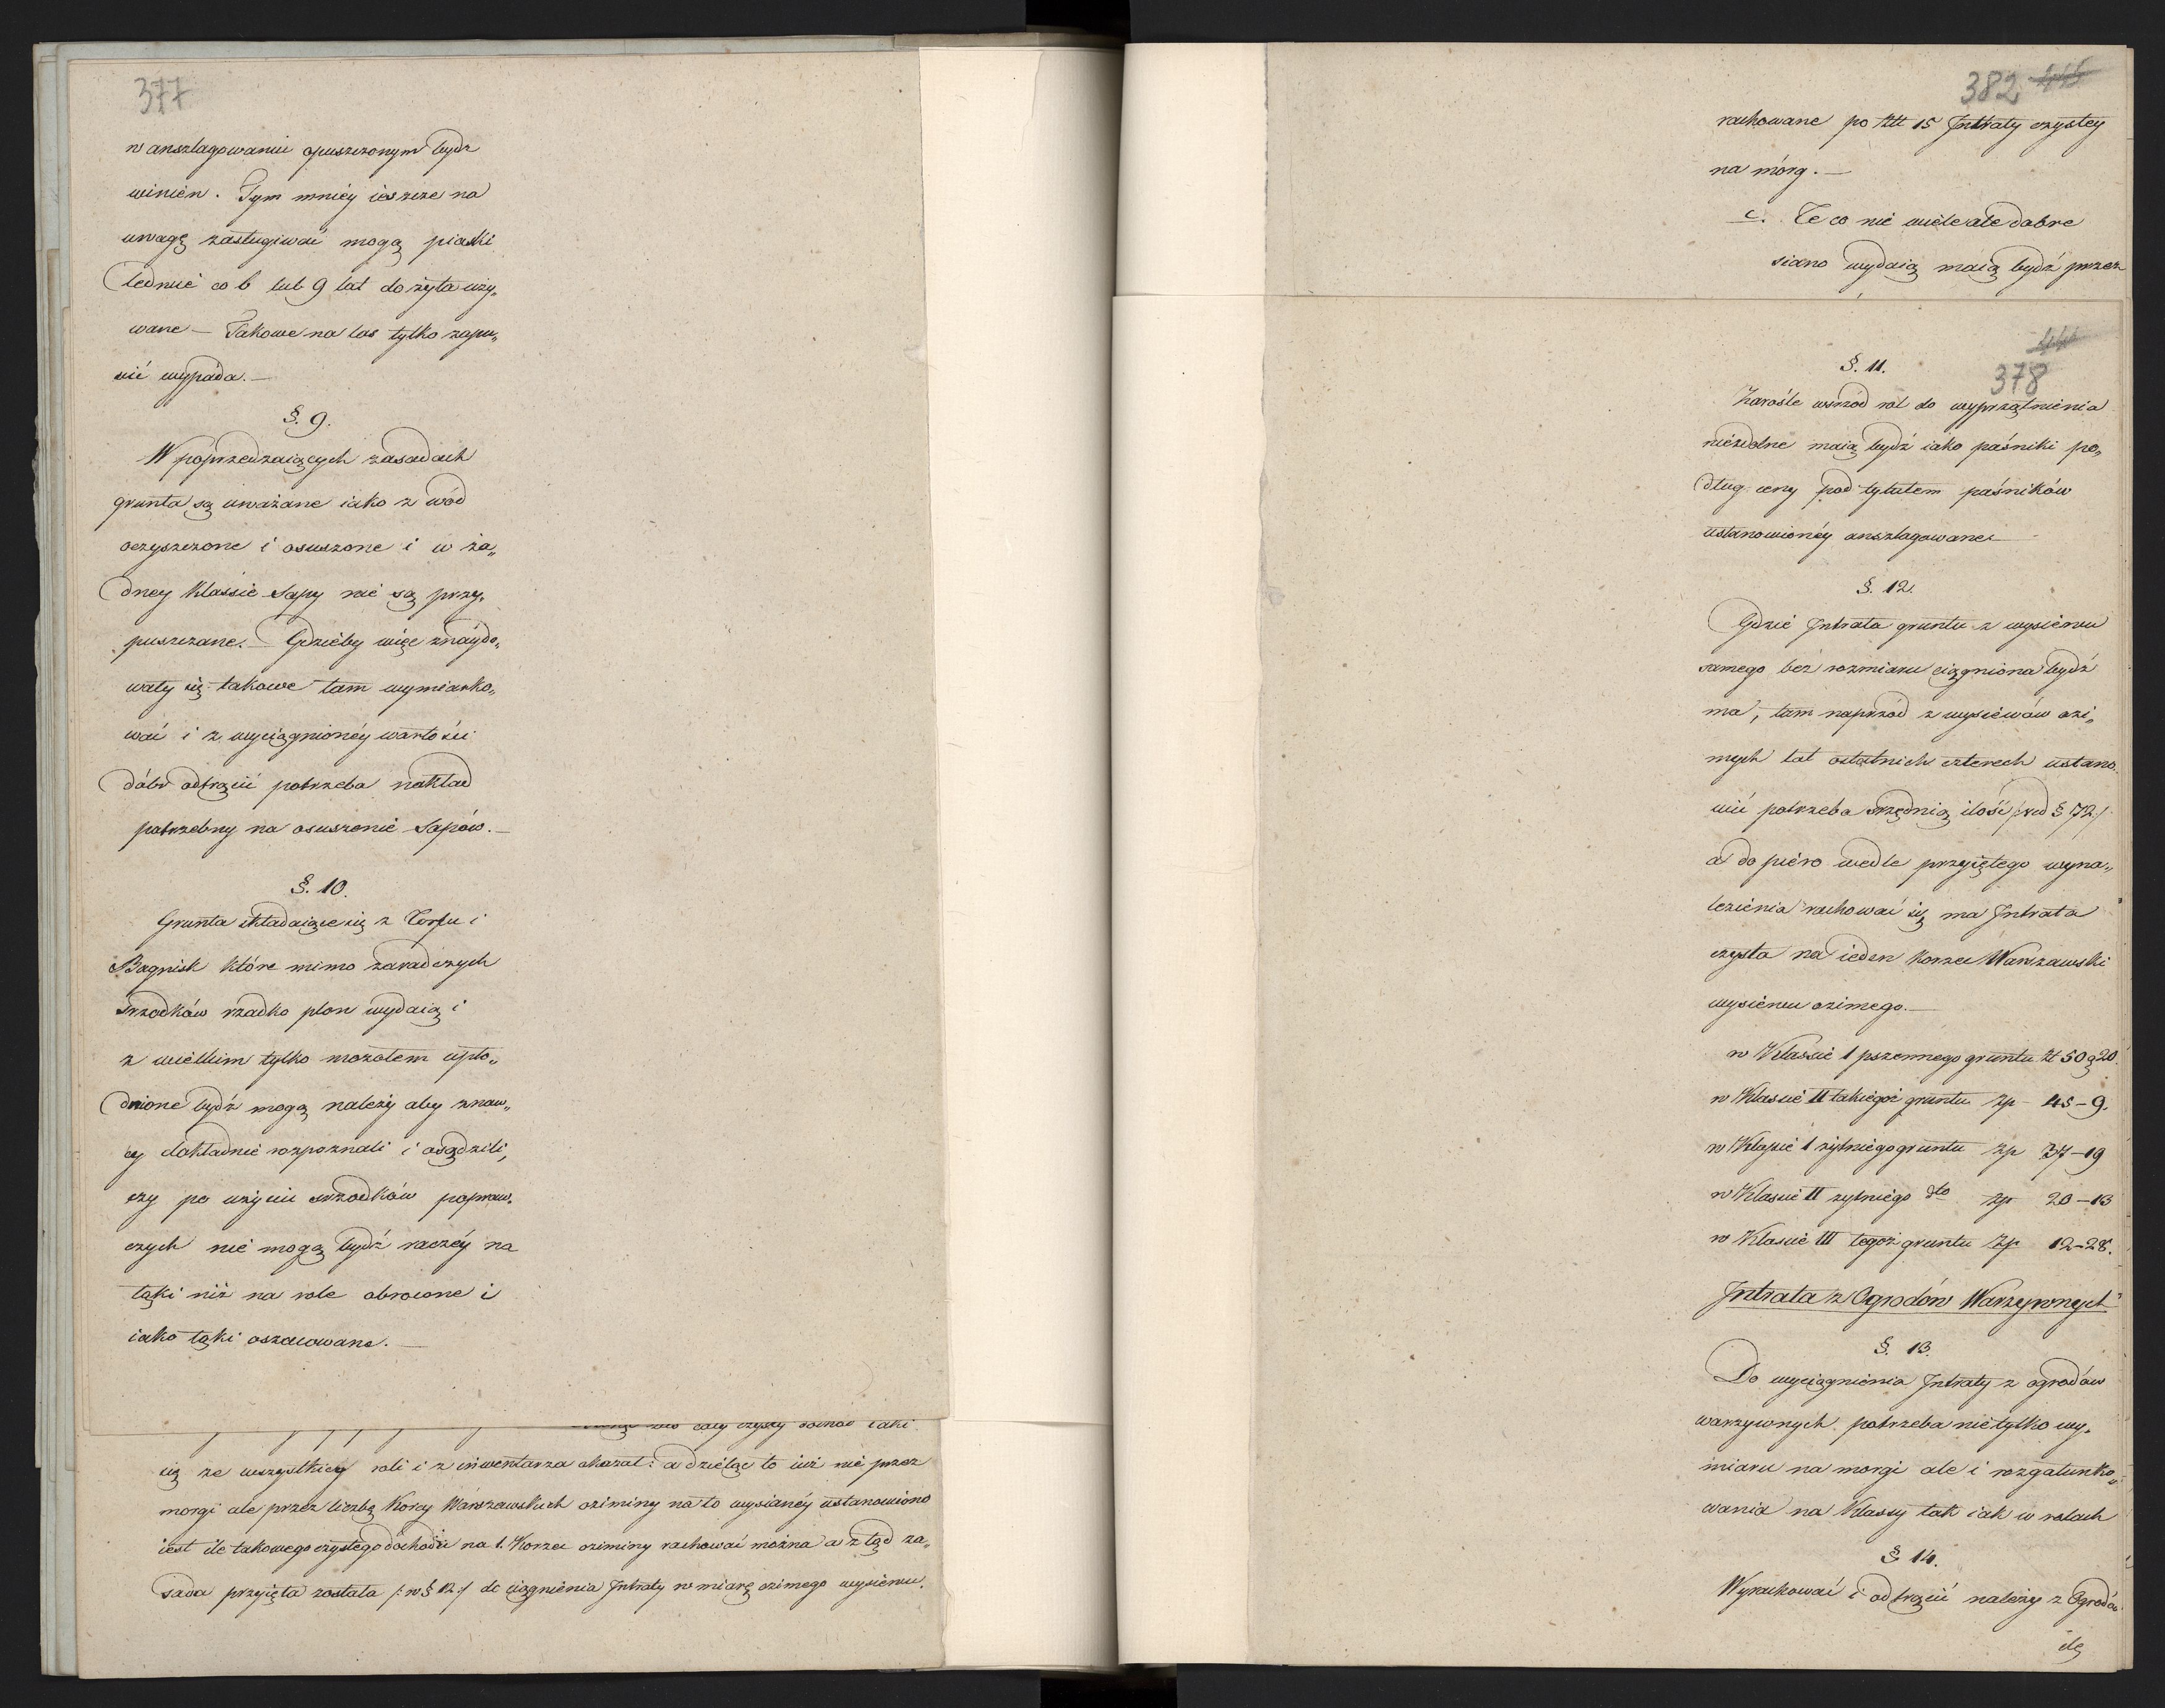 377
w anszlagowaniu opuszczonym bydz
winien. Tym mniéy ieszcze na
uwagę zasługiwać mogą piaski
ledwie co 6 lub 9 lat do żyta uży„
wane — Takowe na las tylko zapu„
ścić wypada. —
§. 9.
W poprzedzaiących zasadach
grunta są uważane iako z wód
oczyszczone i osuszone i w ża„
dney Klassie Sapy nie są przy„
puszczane. — Gdzieby więc znaydo„
wały się takowe tam wymiarko„
wać i z wyciągnionéy wartości
dóbr odtrącić potrzeba nakład
potrzebny na osuszenie Sapów. —
§. 10.
Grunta składaiące się z Torfu i
Bagnisk które mimo zaradczych
srzodków rzadko plon wydaią i
z wielkim tylko mozołem upło„
dnione bydź mogą należy aby znaw„
cy dokładnie rozpoznali i osądzili,
czy po użyciu srzodków popraw„
czych nie mogą bydź raczéy na
łąki niż na role obrocone i
iako łąki oszacowane. —
cały czysty dochod iaki
się ze wszystkiey roli i z inwentarza okazał: a dzieląc to iuż nie przez
morgi ale przez liczbę Korcy Warszawskich oziminy na to wysianéy ustanowiono
iest ile takowego czystego dochodu na 1. Korzec oziminy rachować można a ztąd za„
sada przyięta została /: w § 12 :/ do ciągnienia Intraty w miarę ozimego wysiewu.
382 445
rachowane po Złt 15 Intraty czystey
na mórg. —
c. Te co nie wiele ale dobre
siano wydaią maią bydź przez
441
378
§. 11.
Zarośle wsrzód ról do wyprzątnienia
niezdolne maią bydź iako paśniki po„
dług ceny pod tytułem paśników
ustanowionéy anszlagowane. —
§. 12.
Gdzie Intrata gruntu z wysiewu
samego bez rozmiaru ciągniona bydź
ma, tam naprzód z wysiewów ozi„
mych lat ostatnich czterech ustano„
wić potrzeba srzędnią ilość /:vid § 72:/
a do piéro wedle przyiętego wyna„
lezienia rachować się ma Intrata
czysta na ieden Korzec Warszawski
wysiewu ozimego. —
w Klassie 1 pszennego gruntu Zł 50 g 20.
w Klassie II takiegoż gruntu Zp — 45 – 9.
w Klassie 1 żytniego gruntu Zp 37 – 19
w Klassie II zytniego dto Zp 20 – 13
w Klassie III tegoż gruntu Zp 12 – 28.
Intrata z Ogrodów Warzywnych
§. 13.
Do wyciągnienia Intraty z ogrodów
warzywnych potrzeba nie tylko wy„
miaru na morgi ale i rozgatunko„
wania na Klassy tak iak w rolach
§ 14.
Wyrachować i odtrącić należy z Ogrodów
ilę